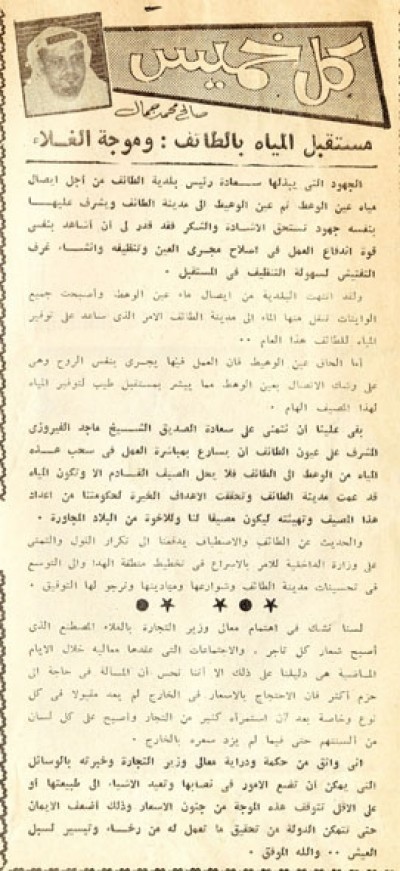 كل خميس
صالح محمد جمال
مستقبل المياه بالطائف : وموجة الغلاء
الجهود التى يبذلها سعادة رئيس بلدية الطائف من أجل ايصال
مياه عين الوهط ثم عين الوهيط الى مدينة الطائف ويشرف عليها
بنفسه جهود تستحق الاشادة والشكر فقد قدر لى أن أشاهد بنفسى
قوة اندفاع العمل فى اصلاح مجرى العين وتنظيفه وانشاء غرف
التفتيش لسهولة التنظيف فى المستقبل .
ولقد انتهت البلدية من ايصال ماء عين الوهط وأصبحت جميع
الوايتات تنقل منها الماء الى مدينة الطائف الامر الذى ساعد على توفير
المياه للطائف هذا العام ..
أما الحاق عين الوهيط فان العمل فيها يجرى بنفس الروح وهى
على وشك الاتصال بعين الوهط مما يبشر بمستقبل طيب لتوفير المياه
لهذا المصيف الهام .
بقى علينا أن نتمنى على سعادة الصديق الشيخ ماجد الفيروزى
المشرف على عيون الطائف أن يسارع بمباشرة العمل فى سحب هذه
المياه من الوهط الى الطائف فلا يحل الصيف القادم الا وتكون المياه
قد عمت مدينة الطائف وتحققت الاهداف الخيرة لحكومتنا من اعداد
هذا المصيف وتهيئته ليكون مصيفا لنا وللاخوة من البلاد المجاورة .
والحديث عن الطائف والاصطياف يدفعنا الى تكرار القول والتمنى
على وزارة الداخلية للامر بالاسراع فى تخطيط منطقة الهدا والى التوسع
فى تحسينات مدينة الطائف وشوارعها وميادينها ونرجو لها التوفيق .
لسنا نشك فى اهتمام معالى وزير التجارة بالغلاء المصطنع الذى
أصبح شعار كل تاجر . والاجتماعات التى عقدها معاليه خلال الايام
الماضية هى دليلنا على ذلك الا أننا نحس أن المسألة فى حاجة الى
حزم أكثر فان الاحتجاج بالاسعار فى الخارج لم يعد مقبولا فى كل
نوع وخاصة بعد أن استمرأه كثير من التجار وأصبح على كل لسان
من ألسنتهم حتى فيما لم يزد سعره بالخارج .
انى واثق من حكمة ودراية معالى وزير التجارة وخبرته بالوسائل
التى يمكن أن تضع الامور فى نصابها وتعيد الاشياء الى طبيعتها أو
على الاقل تتوقف هذه الموجة من جنون الاسعار وذلك أضعف الايمان
حتى تتمكن الدولة من تحقيق ما تعمل له من رخاء وتيسير لسبل
العيش .. والله الموفق .